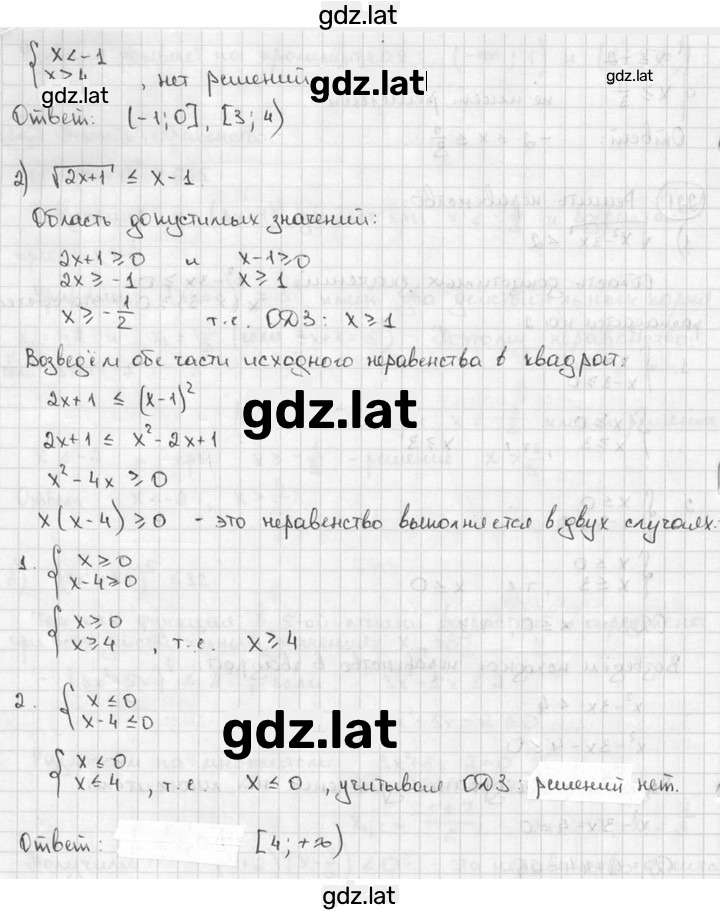 gdz.lat
{ x < -1
x > 4 , нет решений gdz.lat gdz.lat
gdz.lat
Ответ: (-1; 0], [3; 4)
2) √2x+1 ≤ x-1
Область допустимых значений:
2x+1 ≥ 0 и x-1 ≥ 0
2x ≥ -1 x ≥ 1
x ≥ -1/2 т.е. ОДЗ: x ≥ 1
Возведём обе части исходного неравенства в квадрат:
2x+1 ≤ (x-1)²
gdz.lat
2x+1 ≤ x² - 2x+1
x² - 4x ≥ 0
x(x-4) ≥ 0 - это неравенство выполняется в двух случаях:
1. { x ≥ 0
x-4 ≥ 0
{ x ≥ 0
x ≥ 4 , т.е. x ≥ 4
2. { x ≤ 0
x-4 ≤ 0
gdz.lat
{ x ≤ 0
x ≤ 4 , т.е. x ≤ 0 , учитывая ОДЗ: решений нет.
Ответ: [4; +∞)
gdz.lat